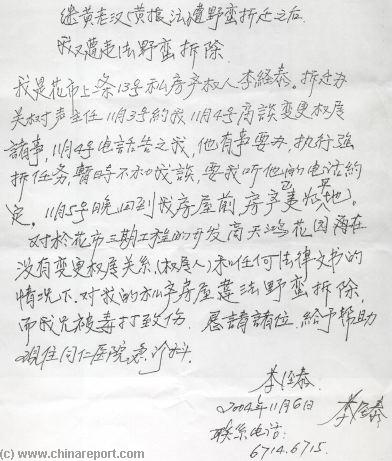 继黄老汉(黄振沄)遭野蛮拆迁之后
我又遭违法野蛮拆除
我是花市上条13号私房产权人李经泰。拆迁办
关树声主任11月3号约我11月4号商谈变更权属
諸事,11月4号电話告之我,他有事要办,执行强
拆任务,暫時不和我談,要我听他的电话约
定。11月5号晚回到我房屋前,房子已夷为平地。
对於花市三期工程的开发商天鸿花园 在
没有变更权属关系(权属人)和任何法律文书的
情况下,对我的私产房屋 违法野蛮拆除,
而我兄被毒打致伤 恳請諸位 給予帮助
现住同仁医院急诊科.
李经泰
2004年11月6日 李经泰
联系电话:
6714.6715.
(c) www.chinareport.com